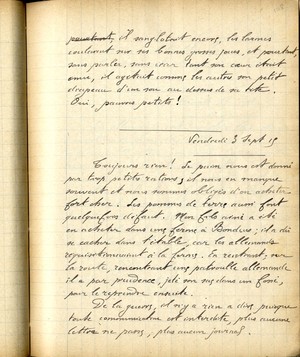 pourtant, il sanglotait encore, les larmes
coulaient sur ses bonnes grosses joues, et pourtant,
sans parler, sans crier tant son cœur était
ému, il agitait comme les autres son petit
drapeau d'un sou au dessus de sa tête.
Oui, pauvres petits !
Vendredi 3 Sept 15
Toujours rien ! Le pain nous est donné
par trop petites rations, et nous en manque
souvent et nous sommes obligés d'en acheter
fort cher. Les pommes de terre aussi font
quelquefois défaut. Mon fils aîné a été
en acheter dans une ferme à Bondues ; il a dû
se cacher dans l'étable, car les allemands
réquisitionnaient à la ferme. En rentrant, sur
la route, rencontrant une patrouille allemande
il a par prudence, jeté son sac dans un fossé,
pour le reprendre ensuite.
De la guerre, il n'y a rien à dire, puisque
toute communication est interdite, plus aucune
lettre ne passe, plus aucun journal.